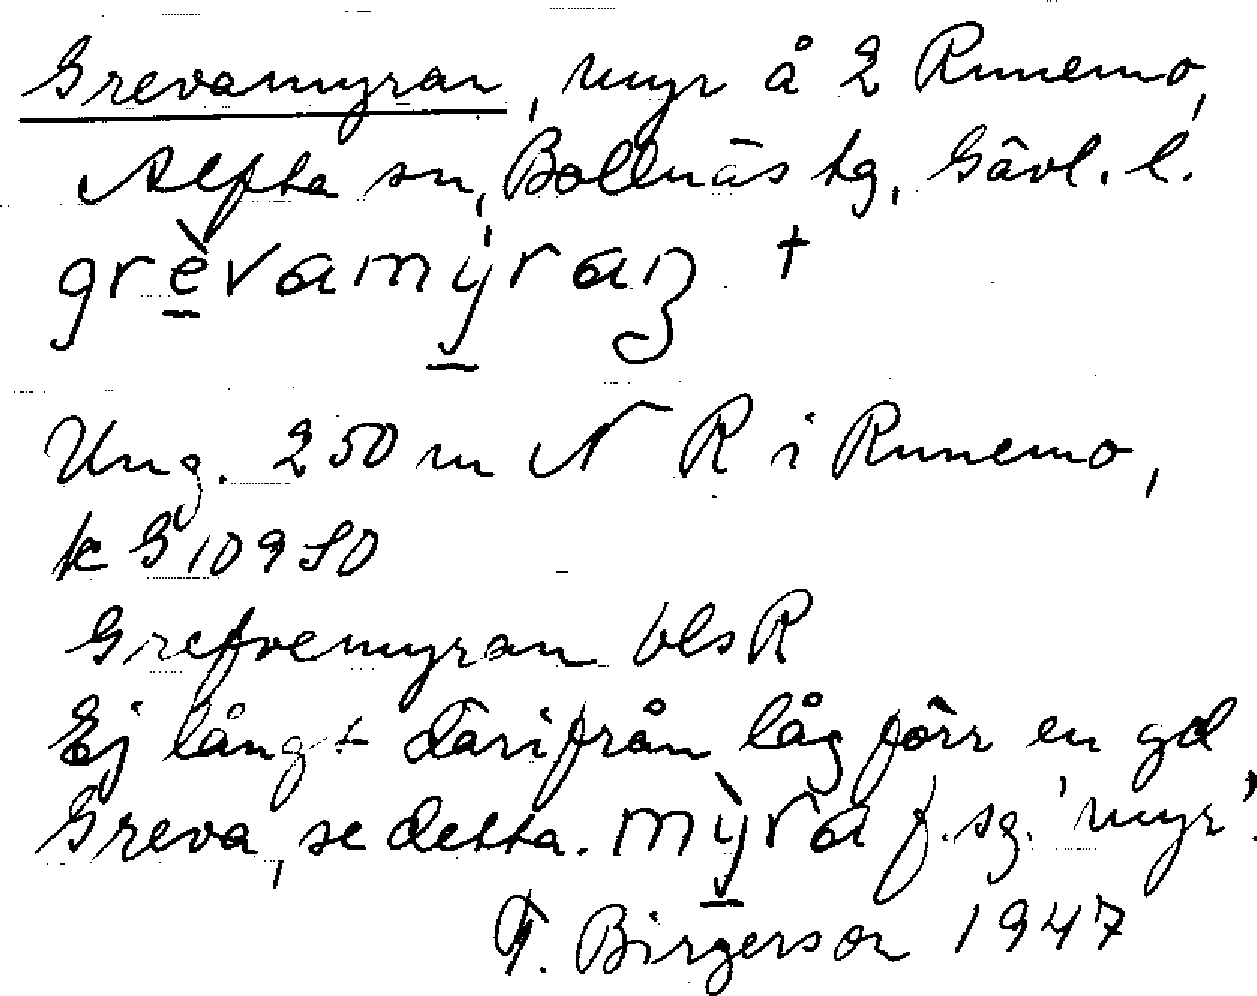 Grevamyran, myr å 2 Runemo,
Alfta sn, Bollnäs tg, Gävl. l.
grèvamy̍raꞑ †
Ung. 250 m N R i Runemo,
k G 10950
Grefvemyran bls R
Ej långt därifrån låg förr en gd
Greva, se detta. mỳra f. sg. 'myr'.
T. Birgerson 1947